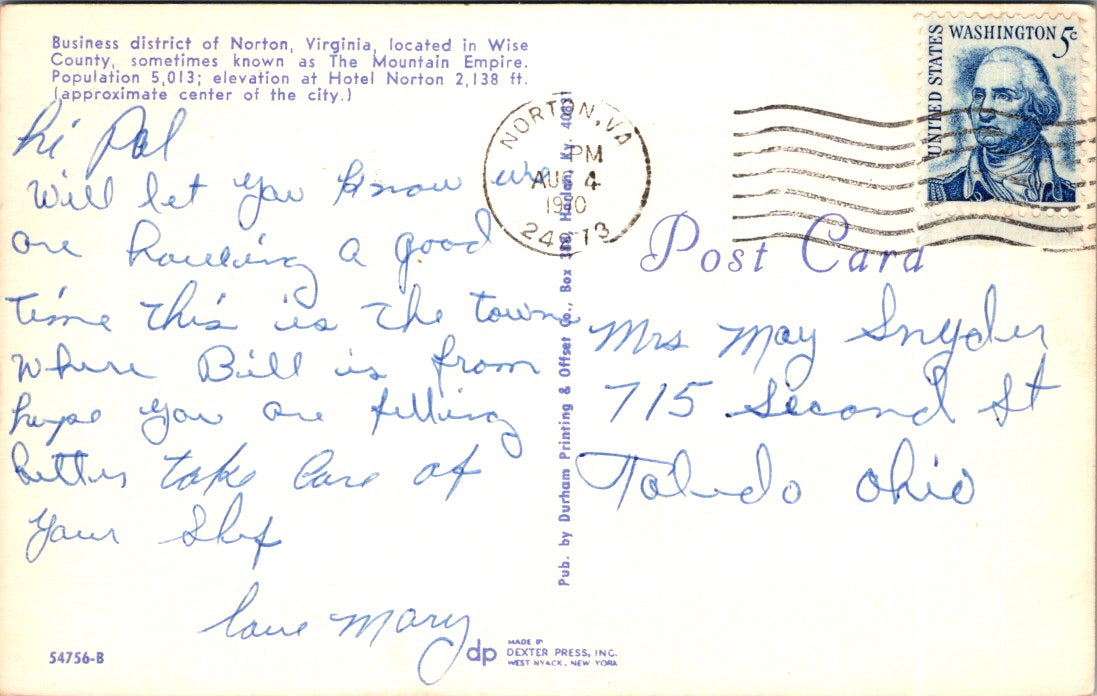 Business district of Norton, Virginia, located in Wise
County, sometimes known as The Mountain Empire.
Population 5,013; elevation at Hotel Norton 2,138 ft.
(approximate center of the city.)
hi Pal
Will let you know we
are haveing a good
time this is the town
where Bill is from
hope you are filling
better take care of
your Slef
love Mary
54756-B
dp
MADE BY
DEXTER PRESS, INC.
WEST NYACK, NEW YORK
Pub. by Durham Printing & Offset Co., Box Harlan, Ky. 40831
NORTON, VA
PM
AUG 4
1970
24273
UNITED STATES
WASHINGTON 5c
Post Card
Mrs May Snyder
715 Second St
Toledo Ohio